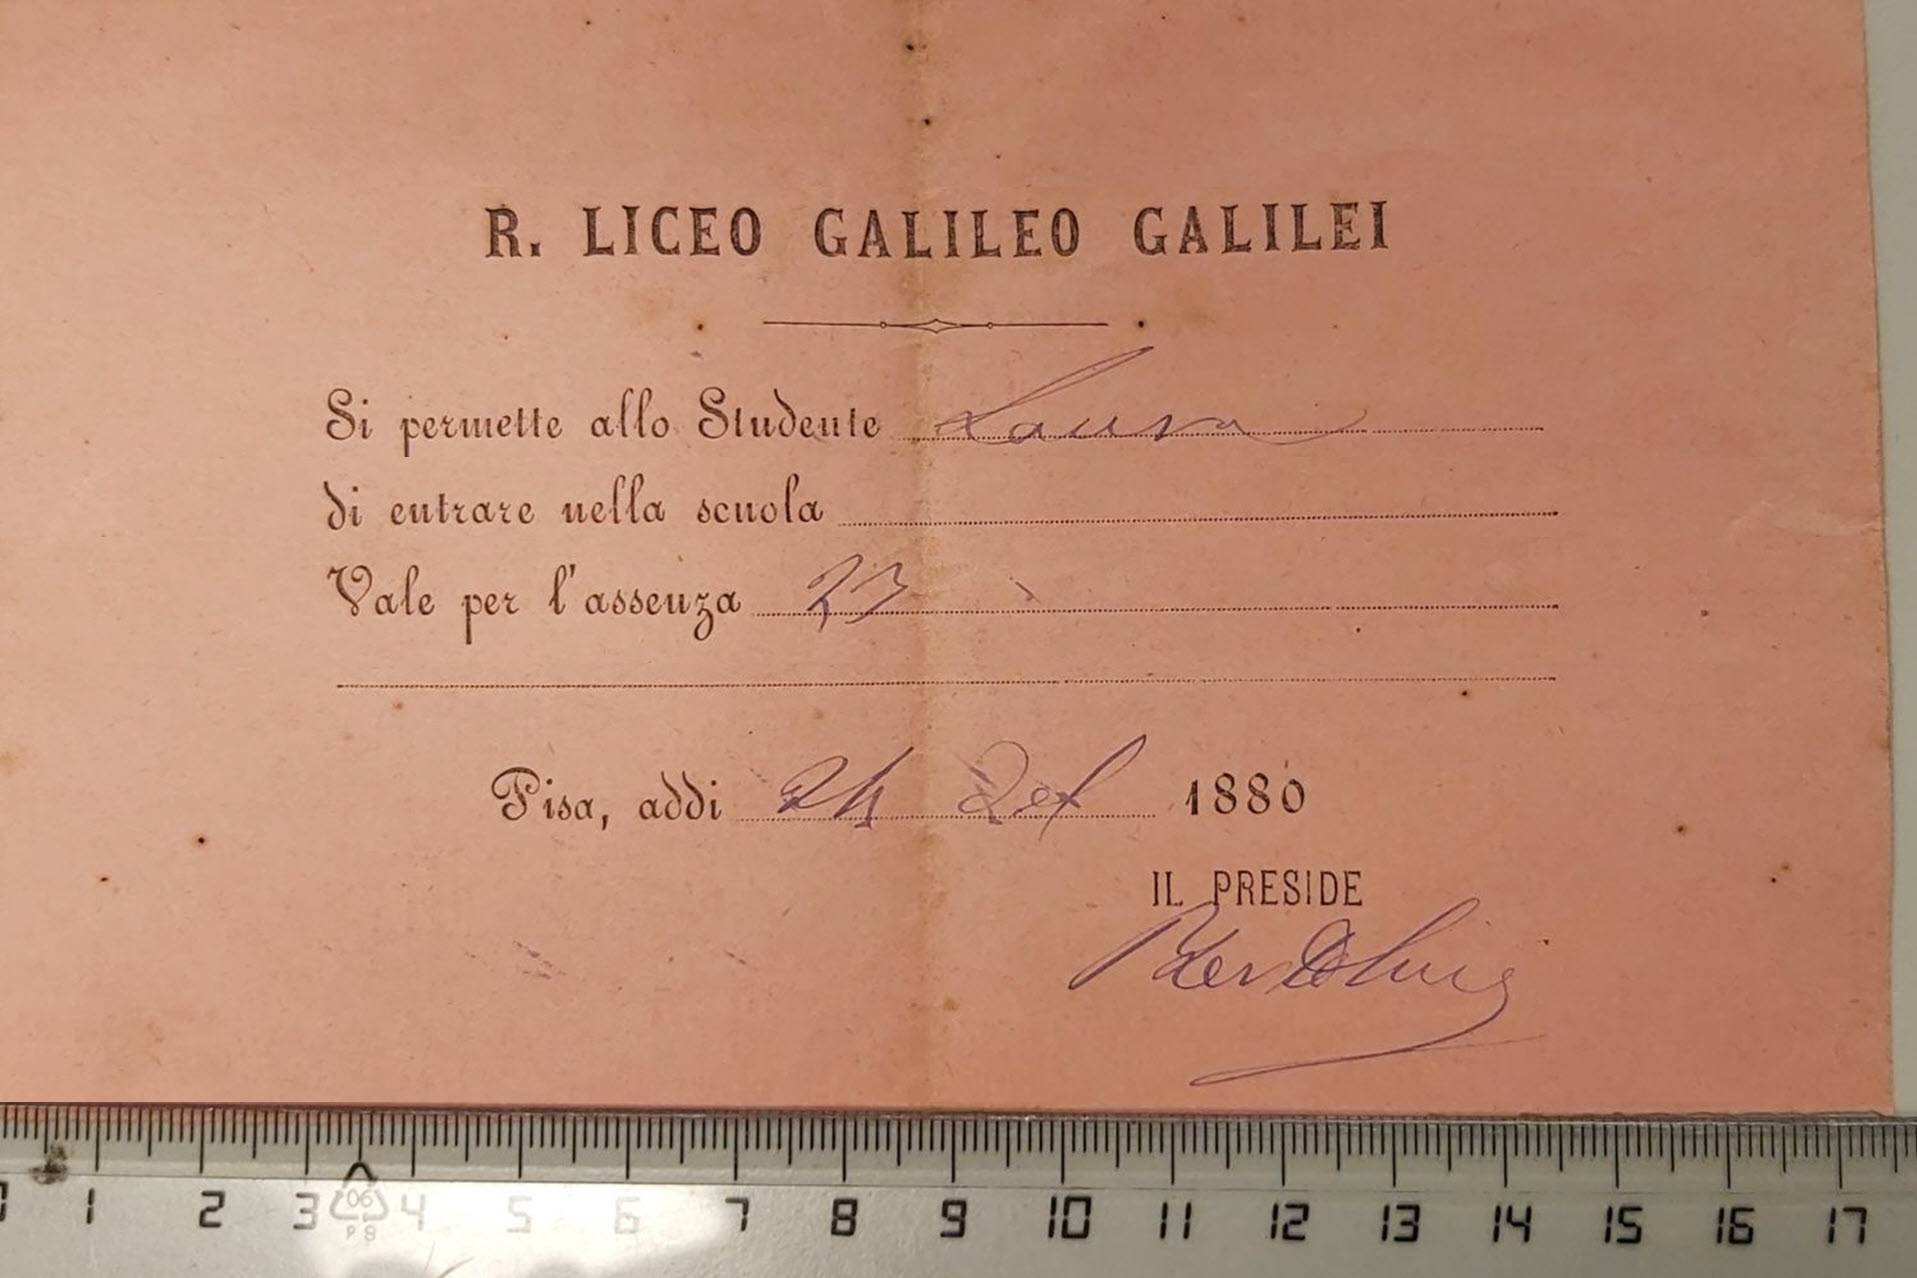 R. LICEO GALILEO GALILEI
Si permette allo Studente
di entrare nella scuola
Vale per l'assenza 23
Pisa, addì 24 1880
IL PRESIDE
0 1 2 3 4 5 6 7 8 9 10 11 12 13 14 15 16 17
06
PS